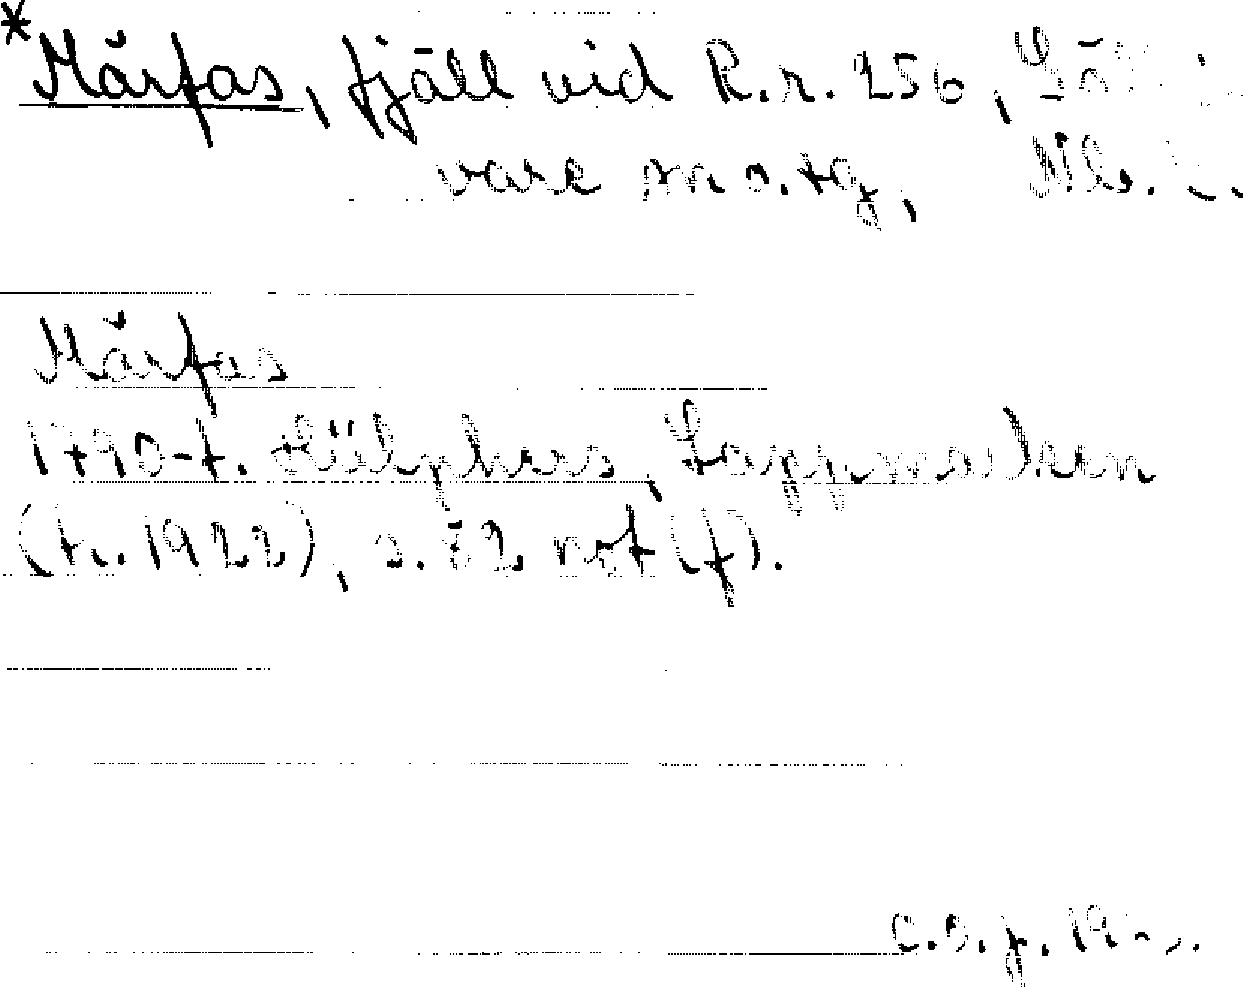 *Mårfas, fjäll vid R.r. 256,
vare sn o. tg, Nb. l.
Mårfas
1790-t. Hülphers, Lappmarken
(tr. 1922), s. 72 not (f).